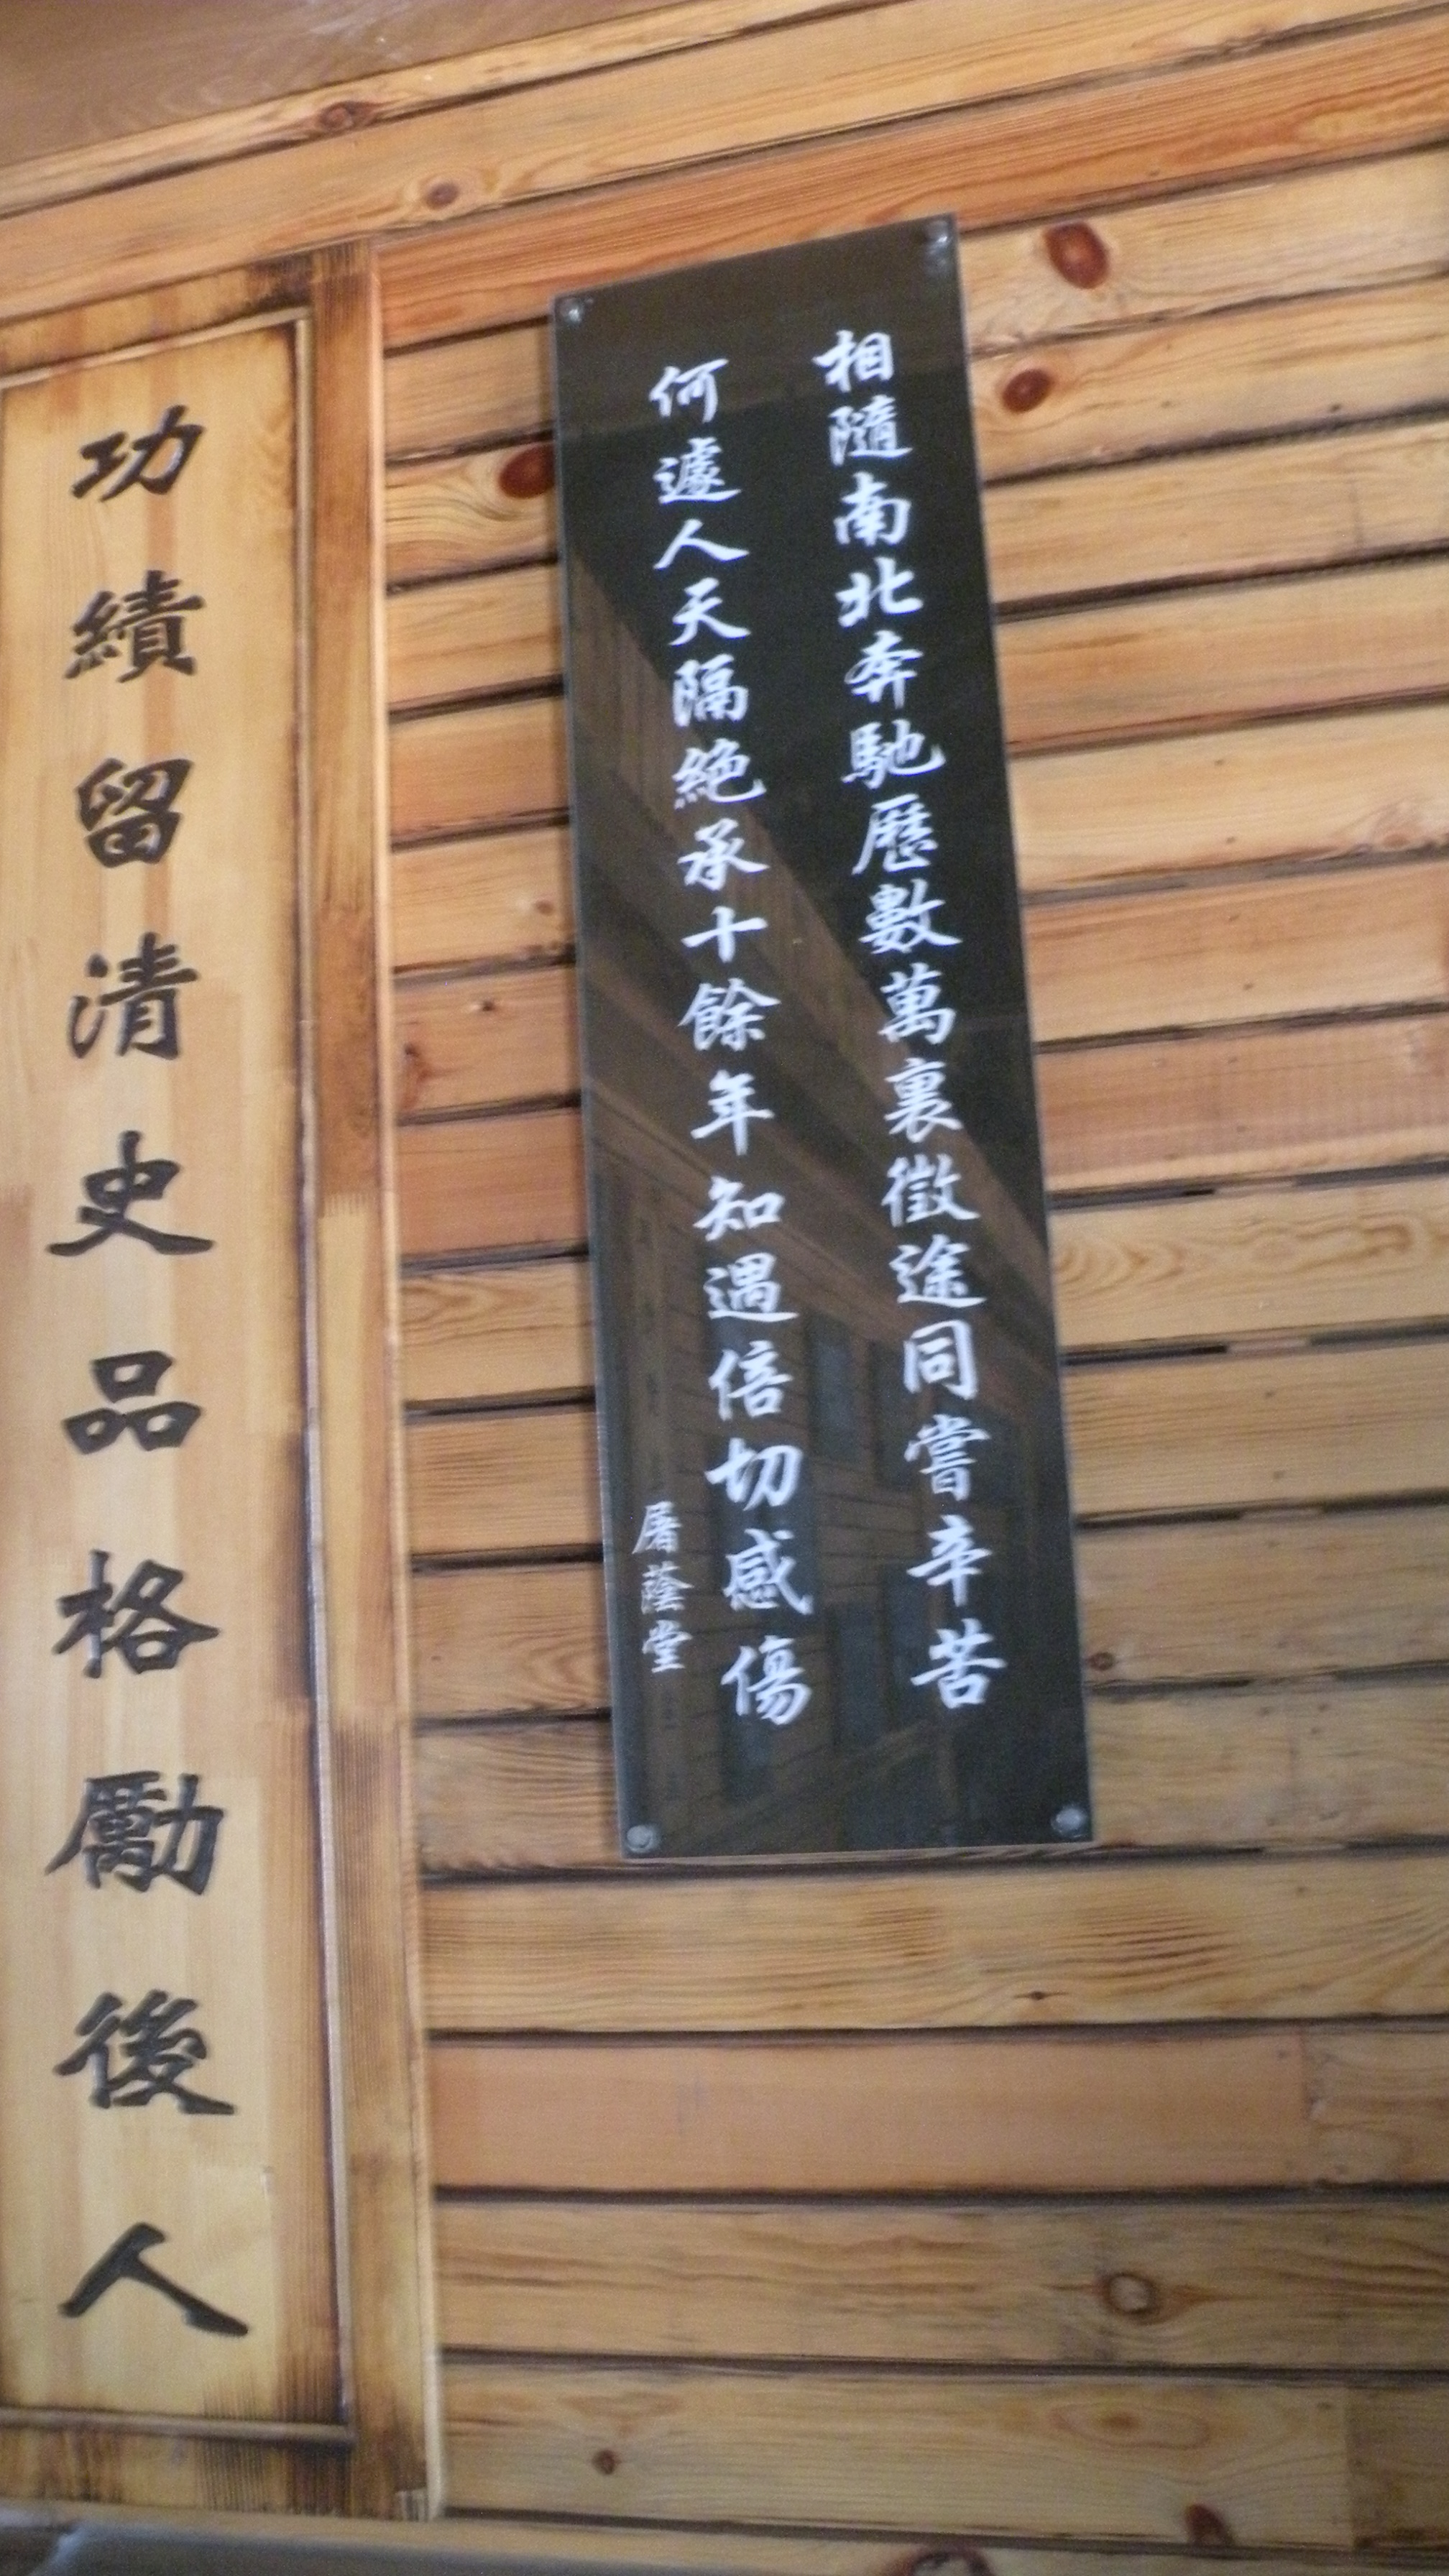 相隨南北奔馳歷數萬裏徵途同嘗辛苦
何遽人天隔絕承十餘年知遇倍切感傷
屠蔭堂
功績留清史品格勵後人